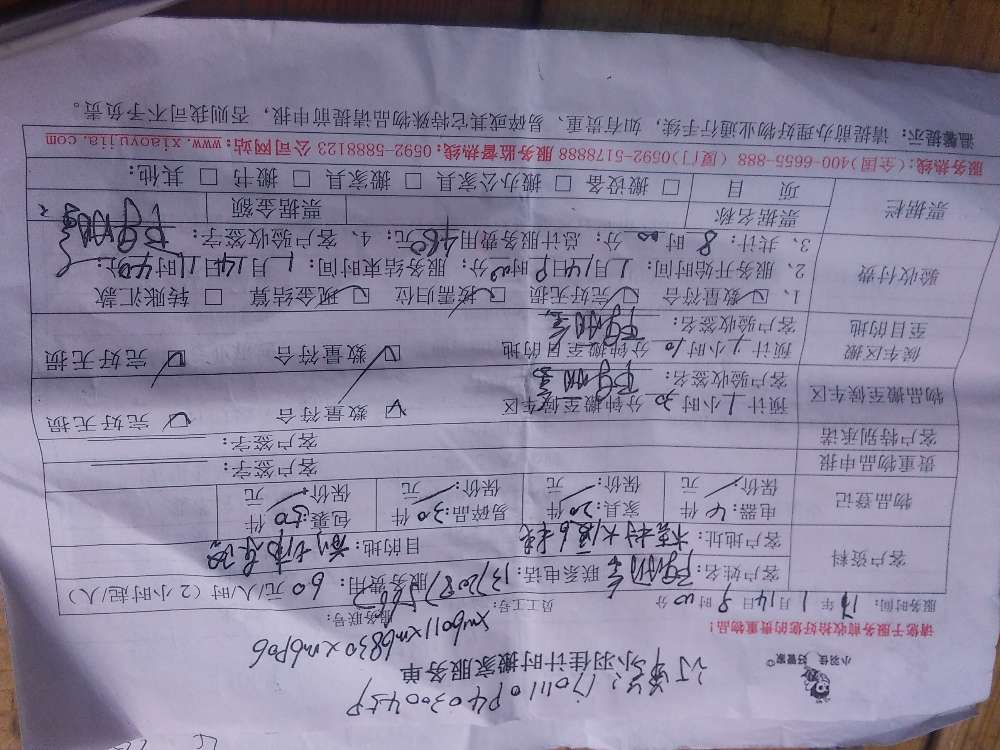 小羽佳计时搬家服务单
小羽佳 好管家
请您于服务前收拾好您的贵重物品!
员工工号: xm6011 xm6830 xm6906
服务联号:
服务时间: 17年 1月14日 9时00分
服务费用: 60 元/人/时(2小时起/人)
客户资料
客户姓名:
联系电话:
客户地址:
目的地:
物品登记
电器: 4件 保价: 元
家具: 20件 保价: 元
易碎品: 30件 保价: 元
包裹: 50件 保价: 元
贵重物品申报
客户签字:
客户特别承诺
客户签字:
物品搬至候车区
预计 1小时30分钟搬至候车区 ☑ 数量符合 ☑ 完好无损
客户验收签名:
候车区搬至目的地
预计 1小时10分钟搬至目的地 ☑ 数量符合 ☑ 完好无损
客户验收签名:
验收付费
1、☑ 数量符合 ☑ 完好无损 ☑ 按需归位 ☑ 现金结算 □ 转账汇款
2、服务开始时间: 1月14日9时00分; 服务结束时间: 1月14日11时40分;
3、共计: 8时00分; 总计服务费用480元; 4、客户验收签字:
票据栏
票据名称
票据金额
项 目 □ 搬设备 □ 搬办公家具 □ 搬家具 □ 搬书 □ 其他:
服务热线:(全国)400-6655-888 (厦门)0592-5178888 服务监督热线:0592-5888123 公司网站:www.xiaoyujia.com
温馨提示: 请提前办理好物业通行手续, 如有贵重、易碎或其它特殊物品请提前申报, 否则我司不予负责。